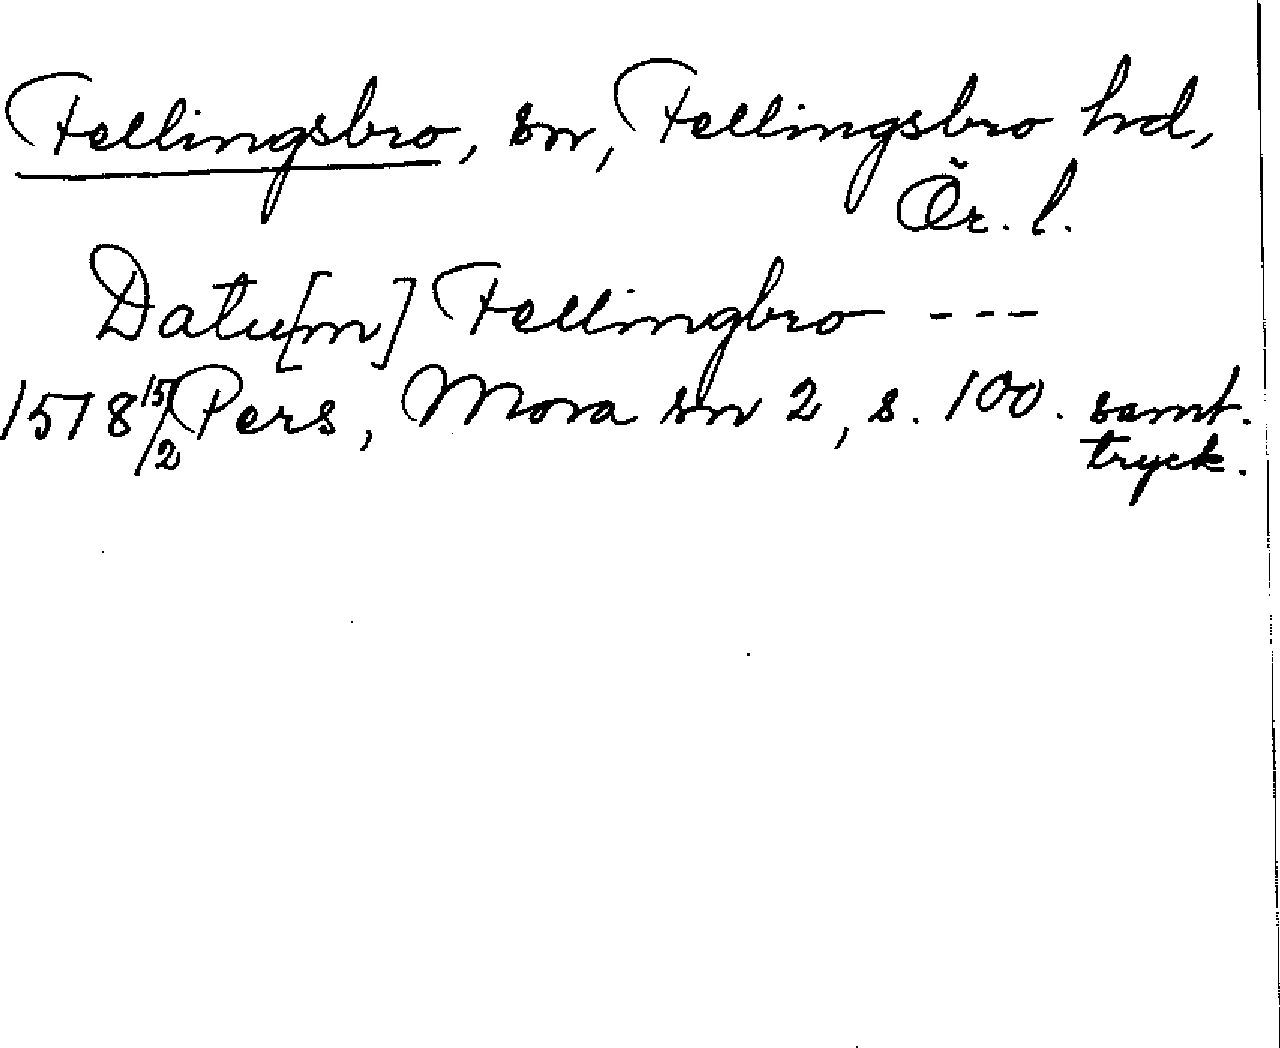 Fellingsbro, sn, Fellingsbro hd,
Ör. l.
Datu[m] Fellingbro ---
1518 15/2 Pers, Mora sn 2, s. 100. samt.
tryck.